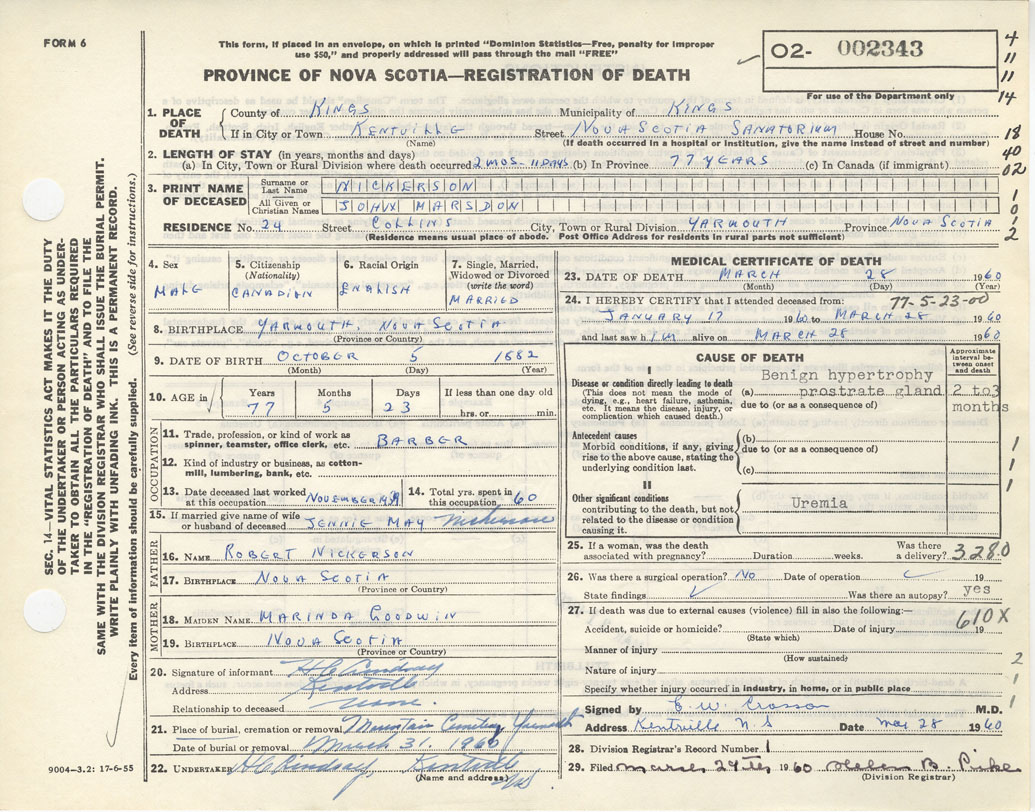 FORM 6
This form, if placed in an envelope, on which is printed "Dominion Statistics—Free, penalty for improper
use $50," and properly addressed will pass through the mail "FREE"
PROVINCE OF NOVA SCOTIA—REGISTRATION OF DEATH
02- 002343
For use of the Department only
4
11
11
14
18
40
02
1
0
1
2
SEC. 14—VITAL STATISTICS ACT MAKES IT THE DUTY
OF THE UNDERTAKER OR PERSON ACTING AS UNDER-
TAKER TO OBTAIN ALL THE PARTICULARS REQUIRED
IN THE "REGISTRATION OF DEATH" AND TO FILE THE
SAME WITH THE DIVISION REGISTRAR WHO SHALL ISSUE THE BURIAL PERMIT.
WRITE PLAINLY WITH UNFADING INK. THIS IS A PERMANENT RECORD.
Every item of information should be carefully supplied. (See reverse side for instructions.)
1. PLACE OF DEATH County of KINGS Municipality of KINGS
If in City or Town KENTVILLE Street NOVA SCOTIA SANATORIUM House No.
(Name) (If death occurred in a hospital or institution, give the name instead of street and number)
2. LENGTH OF STAY (in years, months and days)
(a) In City, Town or Rural Division where death occurred 2 MOS-11 DAYS (b) In Province 77 YEARS (c) In Canada (if immigrant)
3. PRINT NAME OF DECEASED Surname or Last Name NICKERSON
All Given or Christian Names JOHN MARSDON
RESIDENCE No. 24 Street COLLINS City, Town or Rural Division YARMOUTH Province NOVA SCOTIA
(Residence means usual place of abode. Post Office Address for residents in rural parts not sufficient)
4. Sex MALE
5. Citizenship (Nationality) CANADIAN
6. Racial Origin ENGLISH
7. Single, Married, Widowed or Divorced (write the word) MARRIED
8. BIRTHPLACE YARMOUTH, NOVA SCOTIA
(Province or Country)
9. DATE OF BIRTH OCTOBER 5 1882
(Month) (Day) (Year)
10. AGE in Years Months Days If less than one day
77 5 23 hrs. or min.
OCCUPATION
11. Trade, profession, or kind of work as
spinner, teamster, office clerk, etc. BARBER
12. Kind of industry or business, as cotton-
mill, lumbering, bank, etc.
13. Date deceased last worked at this occupation NOVEMBER 1959 14. Total yrs. spent in this occupation 60
15. If married give name of wife
or husband of deceased JENNIE MAY Nickerson
FATHER
16. NAME ROBERT NICKERSON
17. BIRTHPLACE NOVA SCOTIA
(Province or Country)
MOTHER
18. MAIDEN NAME MARINDA GOODWIN
19. BIRTHPLACE NOVA SCOTIA
(Province or Country)
20. Signature of informant H C Lindsay
Address Kentville
Relationship to deceased None
21. Place of burial, cremation or removal Mountain Cemetery Yarmouth
Date of burial or removal March 31. 1960
22. UNDERTAKER H C Lindsay Kentville NS
(Name and address)
9004-3.2: 17-6-55
MEDICAL CERTIFICATE OF DEATH
23. DATE OF DEATH MARCH 28 1960
(Month) (Day) (Year)
24. I HEREBY CERTIFY that I attended deceased from: 77-5-23-00
JANUARY 17 1960 to MARCH 28 1960
and last saw h IM alive on MARCH 28 1960
CAUSE OF DEATH
Approximate interval between onset and death
I
Disease or condition directly leading to death
(This does not mean the mode of
dying, e.g., heart failure, asthenia,
etc. It means the disease, injury, or
complication which caused death.)
(a) Benign hypertrophy
prostrate gland 2 to3 months
due to (or as a consequence of)
Antecedent causes
Morbid conditions, if any, giving
rise to the above cause, stating the
underlying condition last.
(b)
due to (or as a consequence of)
(c)
1
1
1
II
Other significant conditions
contributing to the death, but not
related to the disease or condition
causing it.
Uremia
25. If a woman, was the death Was there
associated with pregnancy? Duration weeks. a delivery? 3280
26. Was there a surgical operation? NO Date of operation 19
State findings Was there an autopsy? yes
27. If death was due to external causes (violence) fill in also the following:— 610X
Accident, suicide or homicide? Date of injury 19
(State which)
Manner of injury
(How sustained)
Nature of injury
Specify whether injury occurred in industry, in home, or in public place
2
1
1
Signed by E W Crosson M.D.
Address Kentville N.S Date Mar 28 1960
28. Division Registrar's Record Number
29. Filed 1960 Helen B.
(Division Registrar)